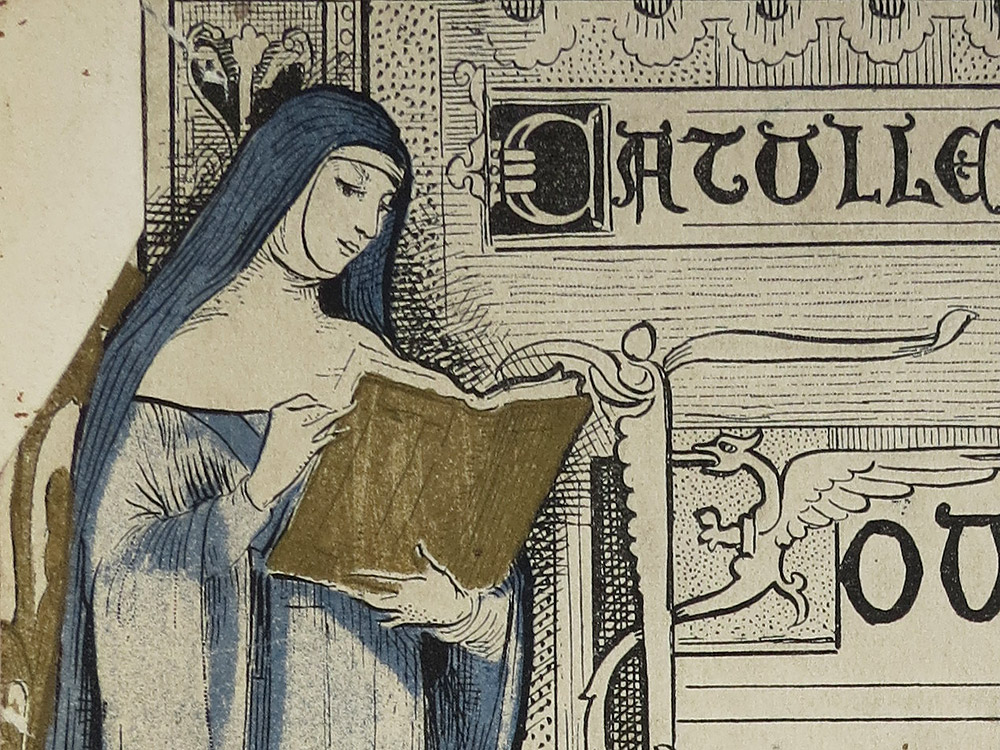 CATULLE
POU